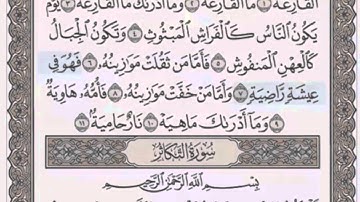 ٱلْقَارِعَةُ ١ مَا ٱلْقَارِعَةُ ٢ وَمَآ أَدْرَىٰكَ مَا ٱلْقَارِعَةُ ٣ يَوْمَ
يَكُونُ ٱلنَّاسُ كَٱلْفَرَاشِ ٱلْمَبْثُوثِ ٤ وَتَكُونُ ٱلْجِبَالُ
كَٱلْعِهْنِ ٱلْمَنفُوشِ ٥ فَأَمَّا مَن ثَقُلَتْ مَوَٰزِينُهُۥ ٦ فَهُوَ فِي
عِيشَةٍ رَّاضِيَةٍ ٧ وَأَمَّا مَنْ خَفَّتْ مَوَٰزِينُهُۥ ٨ فَأُمُّهُۥ هَاوِيَةٌ
٩ وَمَآ أَدْرَىٰكَ مَا هِيَهْ ١٠ نَارٌ حَامِيَةٌۢ ١١
سُورَةُ التَّكَاثُرِ
بِسْمِ ٱللَّهِ ٱلرَّحْمَٰنِ ٱلرَّحِيمِ